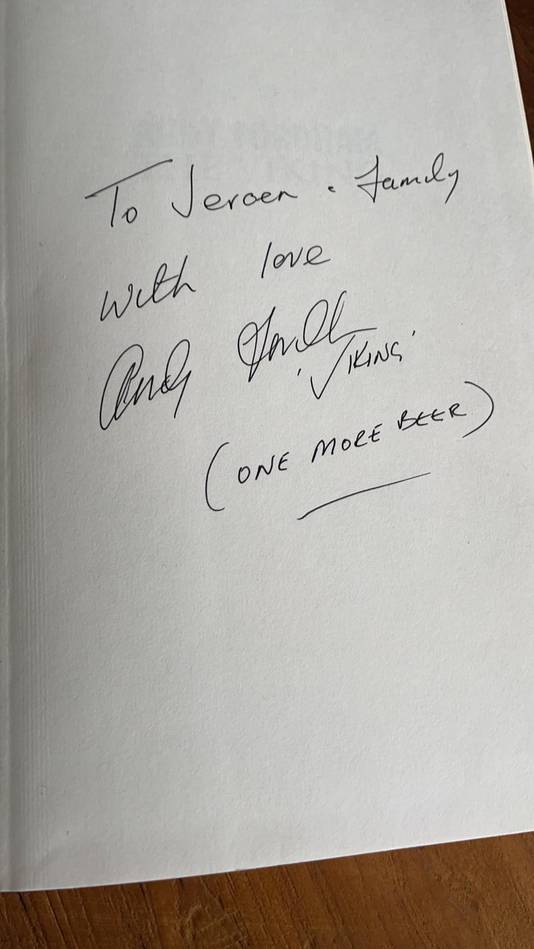 To Jeroen . family
with love
Andy
'VIKING'
(ONE MORE BEER)